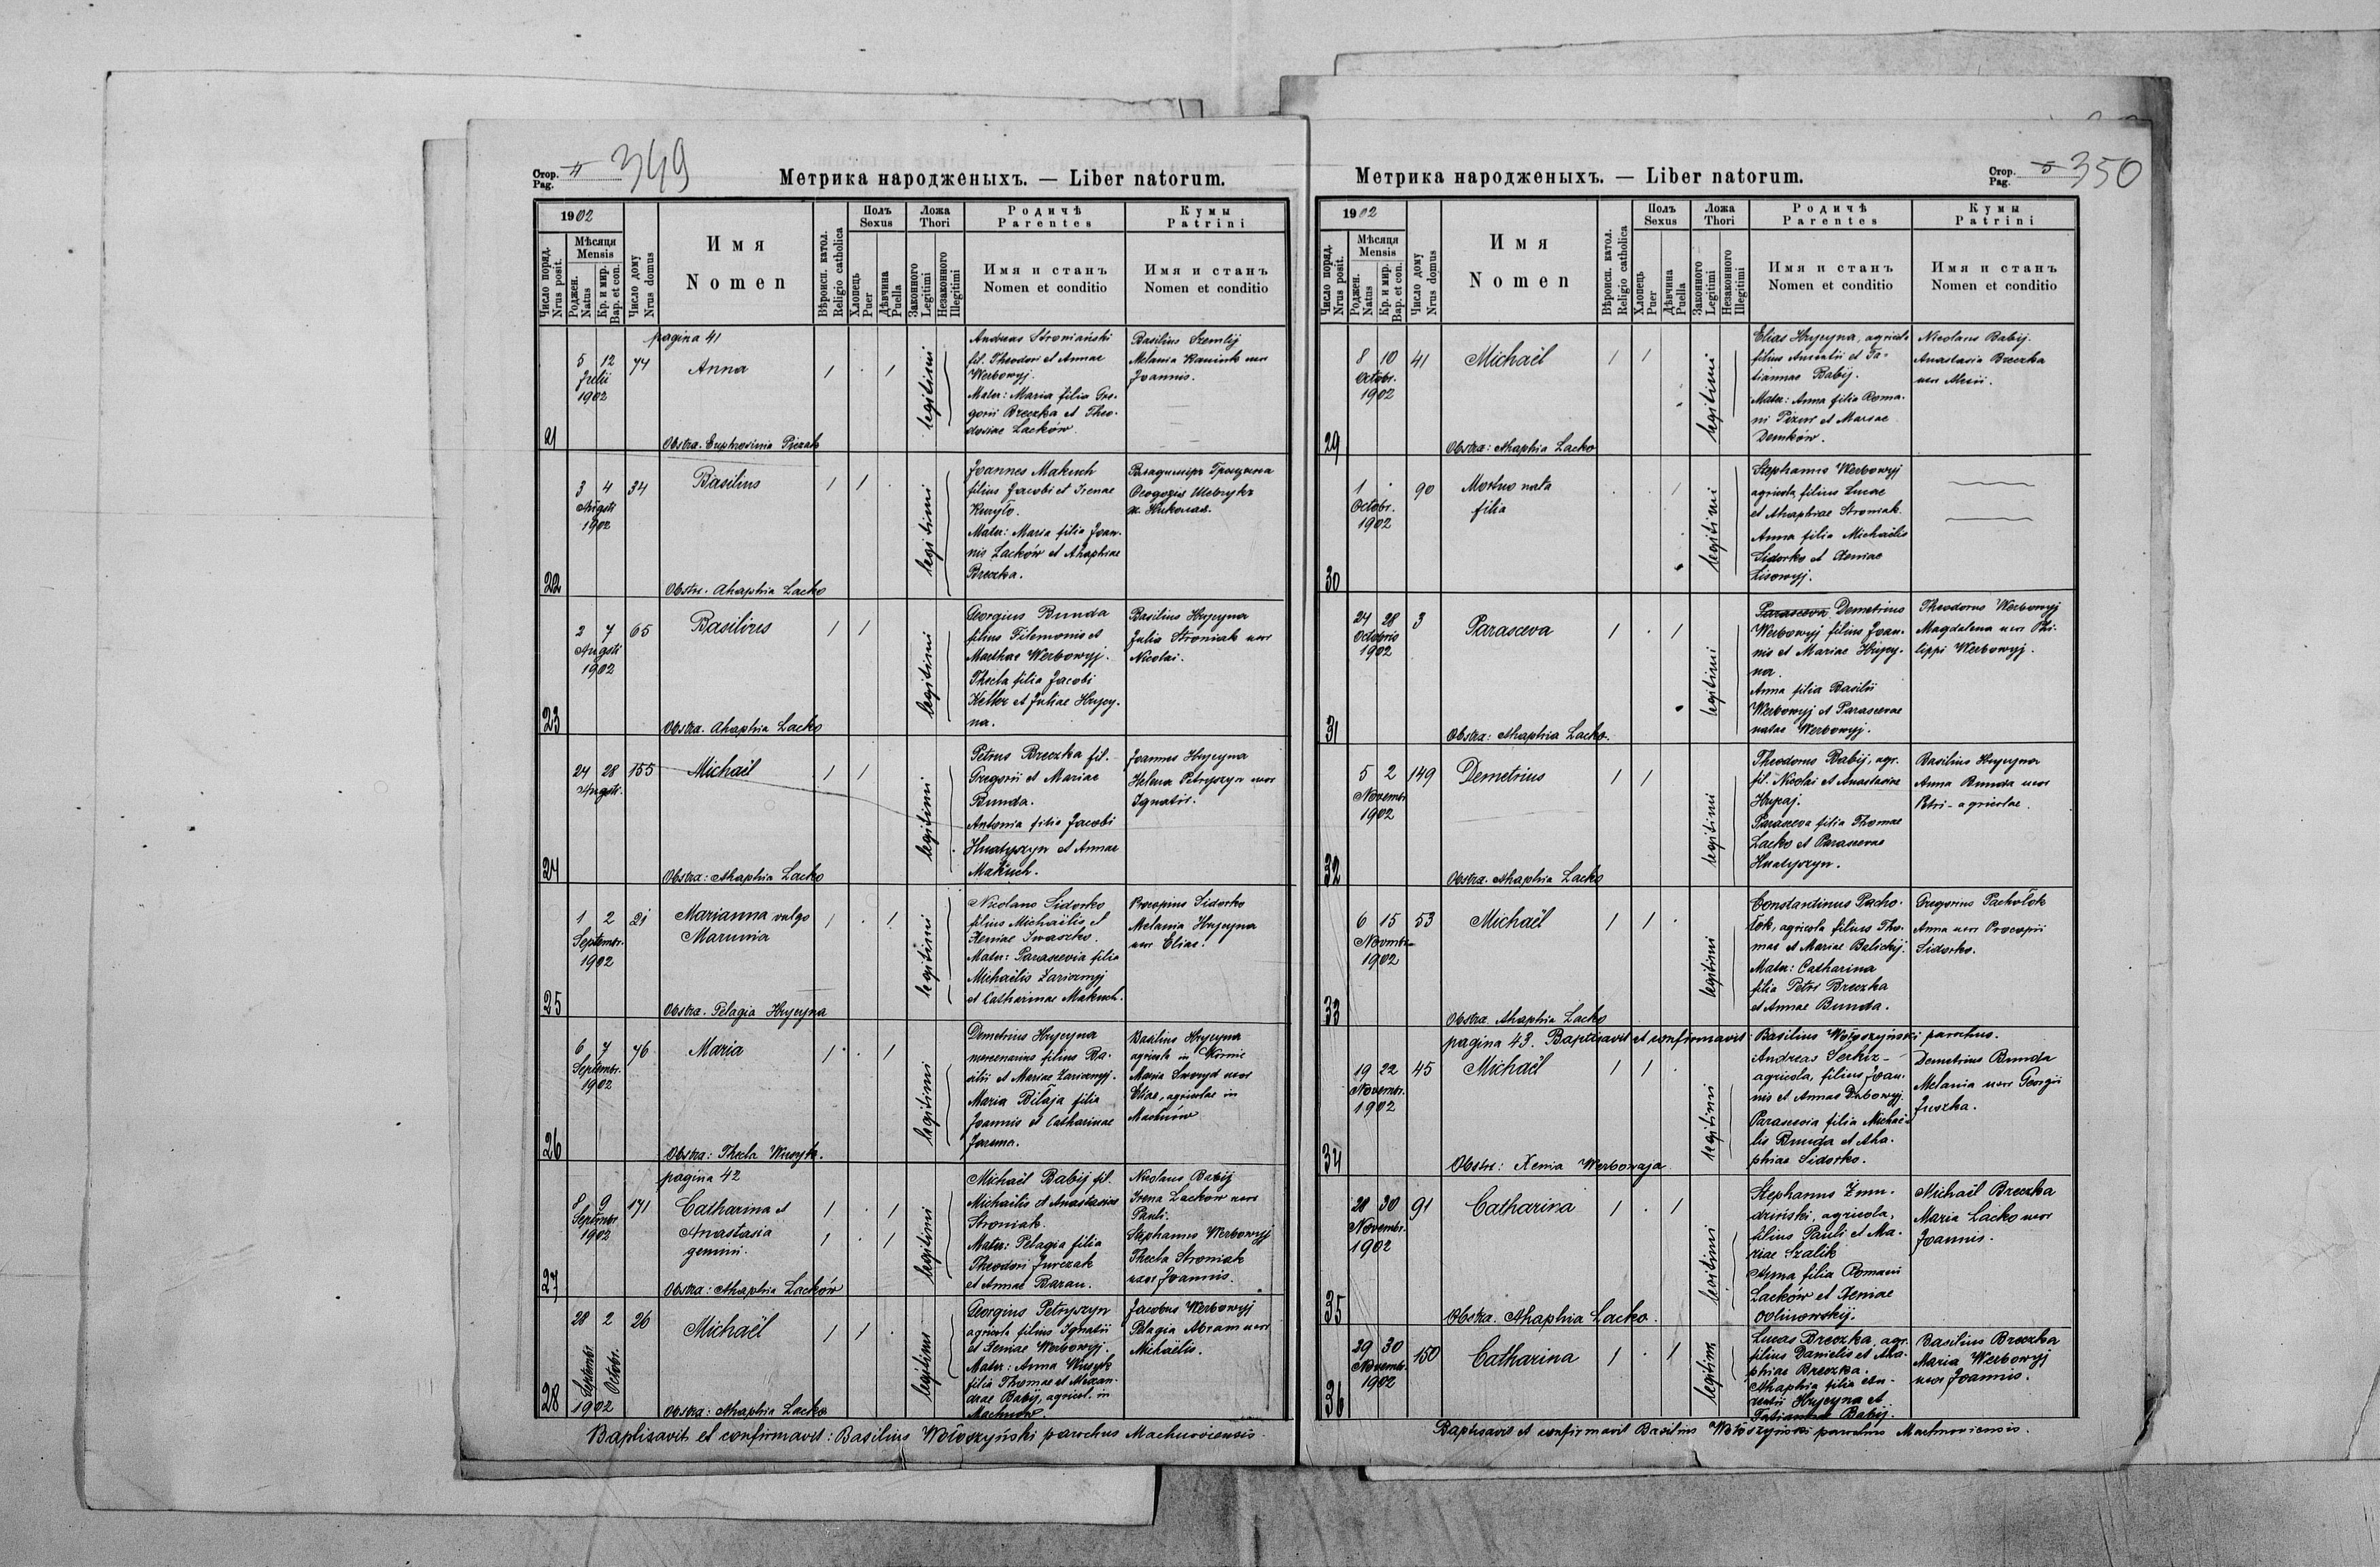 Стор. Pag. 4 349
Метрика народженыхъ. — Liber natorum.
1902
Число поряд. Nrus posit.
Мѣсяця Mensis
Роджен. Natus
Кр. и мир. Bap. et con.
Число дому Nrus domus
Имя
Nomen
Вѣроисп. катол. Religio catholica
Полъ Sexus
Хлопець Puer
Дѣвчина Puella
Ложа Thori
Законного Legitimi
Незаконного Illegitimi
Родичѣ
Parentes
Имя и станъ
Nomen et conditio
Кумы
Patrini
Имя и станъ
Nomen et conditio
pagina 41
21
5 12
Julii
1902
74
Anna
legitimi
Andreas Stroniański
fil. Theodori et Annae
Werbowyj.
Mater: Maria filia Gre-
gorii Breczka et Theo-
dosiae Lacków.
Basilius
Melania uxor
Joannis.
Obstra. Euphrosinia
22
3 4
Augsti
1902
34
Basilius
legitimi
Joannes Makuch
filius Jacobi et Irenae
Mater: Maria filia Joan-
nis Lacków et Ahaphiae
Breczka.
Владимиръ Грицина
ж. Николая.
Obstr. Ahaphia Lacko
23
2 7
Augsti
1902
65
Basilius
legitimi
Georgius Bunda
filius Filemonis et
Marthae Werbowyj.
Thecla filia Jacobi
Keller et Juliae Hrycy-
na.
Basilius Hrycyna
Julia Stroniak uxor
Nicolai.
Obstra. Ahaphia Lacko
24
24 28
Augsti.
155
Michaël
legitimi
Petrus Breczka fil.
Gregorii et Mariae
Bunda.
Antonia filia Jacobi
Hnatyszyn et Annae
Makuch.
Joannes Hrycyna
Helena Petryszyn uxor
Ignatii.
Obstra: Ahaphia Lacko
25
1 2
Septembr.
1902
21
Marianna vulgo
Marunia
legitimi
Nicolaus Sidorko
filius Michaëlis et
Xeniae Iwaszko.
Mater: Parascevia filia
Michaëlis Zaricznyj
et Catharinae Makuch.
Procopius Sidorko
Melania Hrycyna
uxor Eliae.
Obstra. Pelagia Hrycyna
26
6 7
Septembr.
1902
76
Maria
legitimi
Demetrius Hrycyna
mercenarius filius Ba-
silii et Mariae Zaricznyj.
Maria Bilaja filia
Joannis et Catharinae
Jarema.
Basilius Hrycyna
agricola in Kornie
Maria uxor
Eliae, agricolae in
Machnów
Obstra: Thecla
pagina 42
27
8 9
Septembr.
1902
171
Catharina et
Anastasia
gemini.
legitimi
Michaël Babij fil.
Michaëlis et Anastasiae
Stroniak.
Mater: Pelagia filia
Theodori Jurczak
et Annae Baran.
Nicolaus Babij
Irena Lacków uxor
Pauli.
Stephanus Werbowyj
Thecla Stroniak
uxor Joannis.
Obstra: Ahaphia Lacków
28
28 2
Septembr. Octobr.
1902
26
Michaël
legitimus
Georgius Petryszyn
agricola filius Ignatii
et Xeniae Werbowyj.
Mater: Anna
filia Thomae et Alexan-
drae Babij, agricol. in
Machnów.
Jacobus Werbowyj
Pelagia Abram uxor
Michaëlis.
Obstra: Ahaphia Lacko
Baptisavit et confirmavit: Basilius Wołoszyński parochus Machnoviensis.
Стор. Pag. 5 350
Метрика народженыхъ. — Liber natorum.
1902
Число поряд. Nrus posit.
Мѣсяця Mensis
Роджен. Natus
Кр. и мир. Bap. et con.
Число дому Nrus domus
Имя
Nomen
Вѣроисп. катол. Religio catholica
Полъ Sexus
Хлопець Puer
Дѣвчина Puella
Ложа Thori
Законного Legitimi
Незаконного Illegitimi
Родичѣ
Parentes
Имя и станъ
Nomen et conditio
Кумы
Patrini
Имя и станъ
Nomen et conditio
29
8 10
Octobr.
1902
41
Michaël
legitimi
Elias Hrycyna, agricola
filius et Ta-
tiannae Babij.
Mater: Anna filia Roma-
ni et Mariae
Demków.
Nicolaus Babij.
Anastasia Breczka
uxor Alexii.
Obstra: Ahaphia Lacko
30
1
Octobr.
1902
90
Mortuo nata
filia
legitimi
Stephanus Werbowyj
agricola filius Lucae
et Ahaphiae Stroniak.
Anna filia Michaëlis
Sidorko et Xeniae
Lisowyj.
31
24 28
Octobris
1902
3
Parasceva
legitimi
Parasceva Demetrius
Werbowyj filius Joan-
nis et Mariae Hrycy-
na.
Anna filia Basilii
Werbowyj et Parascevae
natae Werbowyj.
Theodorus Werbowyj
Magdalena uxor Phi-
lippi Werbowyj.
Obstra: Ahaphia Lacko.
32
5 2
Novembr.
1902
149
Demetrius
legitimi
Theodorus Babij, agr.
fil. Nicolai et Anastasiae
Parasceva filia Thomae
Lacko et Parascevae
Hnatyszyn.
Basilius Hrycyna
Anna Bunda uxor
Petri - agricolae.
Obstra. Ahaphia Lacko
33
6 15
Novembr.
1902
53
Michaël
legitimi
Constantinus Pacho-
łok, agricola filius Tho-
mae et Mariae Balickyj.
Mater: Catharina
filia Petri Breczka
et Annae Bunda.
Gregorius Pachołok
Anna uxor Procopii
Sidorko.
Obstra. Ahaphia Lacko
pagina 43. Baptisavit et confirmavit Basilius Wołoszyński parochus.
34
19 22
Novembr.
1902
45
Michaël
legitimi
Andreas Serkiz -
agricola, filius Joan-
nis et Annae
Parascevia filia Michaë-
lis Bunda et Aha-
phiae Sidorko.
Demetrius Bunda
Melania uxor Georgii
Obstr: Xenia Werbowaja
35
28 30
Novembr.
1902
91
Catharina
legitimi
Stephanus Żmu-
dziński, agricola,
filius Pauli et Ma-
riae Szalik
Anna filia Romani
Lacków et Xeniae
Michaël Breczka
Maria Lacko uxor
Joannis.
Obstra. Ahaphia Lacko.
36
29 30
Novembr.
1902
150
Catharina
legitim
Lucas Breczka, agr.
filius Danielis et Aha-
phiae Breczka.
Ahaphia filia
Hrycyna et
Tatiannae Babij.
Basilius Breczka
Maria Werbowyj
uxor Joannis.
Baptisavit et confirmavit Basilius Wołoszyński parochus Machnoviensis.